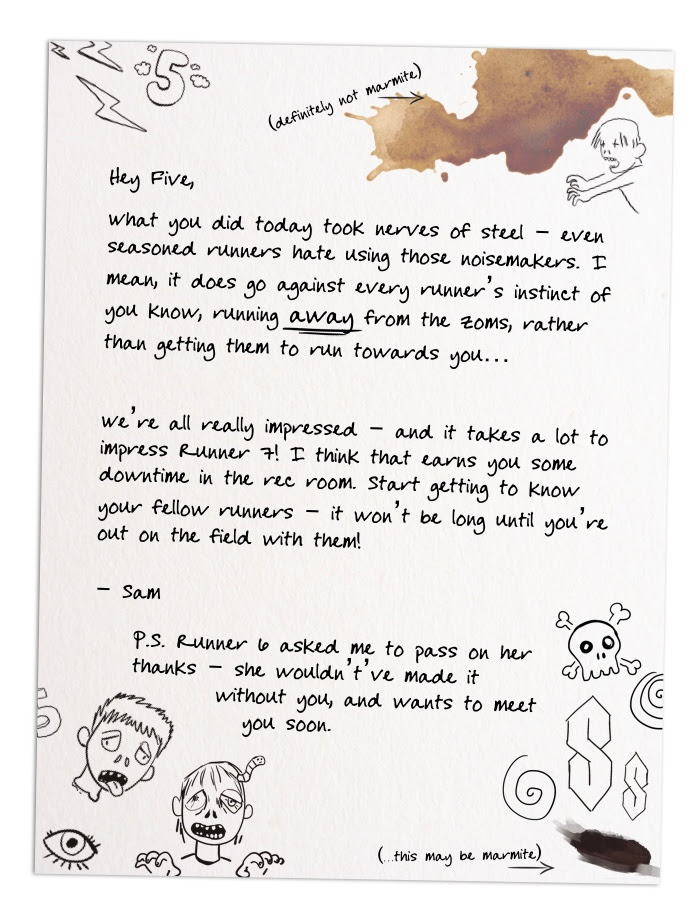 5
(definitely not marmite)
Hey Five,
What you did today took nerves of steel – even
seasoned runners hate using those noisemakers. I
mean, it does go against every runner's instinct of
you know, running away from the zoms, rather
than getting them to run towards you...
We're all really impressed – and it takes a lot to
impress Runner 7! I think that earns you some
downtime in the rec room. Start getting to know
your fellow runners – it won't be long until you're
out on the field with them!
– Sam
P.S. Runner 6 asked me to pass on her
thanks – she wouldn't've made it
without you, and wants to meet
you soon.
5
S
S
(...this may be marmite)